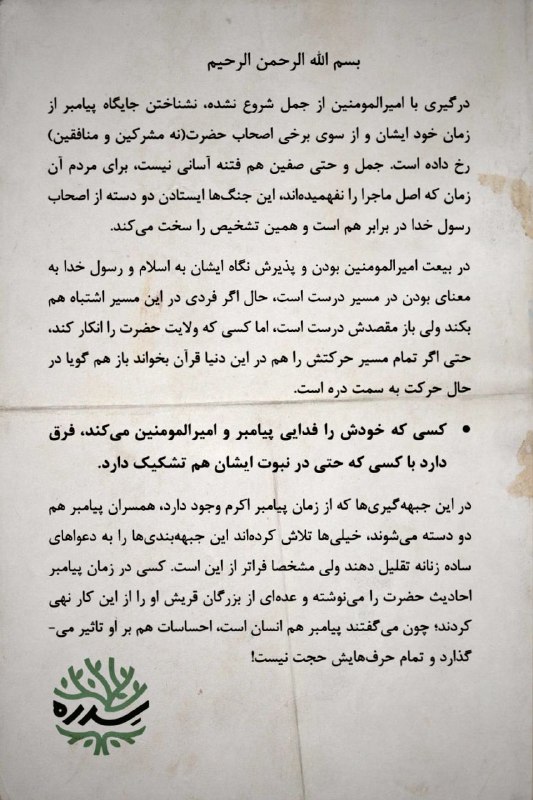 بسم الله الرحمن الرحیم
درگیری با امیرالمومنین از جمل شروع نشده، نشناختن جایگاه پیامبر از
زمان خود ایشان و از سوی برخی اصحاب حضرت(نه مشرکین و منافقین)
رخ داده است. جمل و حتی صفین هم فتنه آسانی نیست، برای مردم آن
زمان که اصل ماجرا را نفهمیده‌اند، این جنگ‌ها ایستادن دو دسته از اصحاب
رسول خدا در برابر هم است و همین تشخیص را سخت می‌کند.
در بیعت امیرالمومنین بودن و پذیرش نگاه ایشان به اسلام و رسول خدا به
معنای بودن در مسیر درست است، حال اگر فردی در این مسیر اشتباه هم
بکند ولی باز مقصدش درست است، اما کسی که ولایت حضرت را انکار کند،
حتی اگر تمام مسیر حرکتش را هم در این دنیا قرآن بخواند باز هم گویا در
حال حرکت به سمت دره است.
• کسی که خودش را فدایی پیامبر و امیرالمومنین می‌کند، فرق
دارد با کسی که حتی در نبوت ایشان هم تشکیک دارد.
در این جبهه‌گیری‌ها که از زمان پیامبر اکرم وجود دارد، همسران پیامبر هم
دو دسته می‌شوند، خیلی‌ها تلاش کرده‌اند این جبهه‌بندی‌ها را به دعواهای
ساده زنانه تقلیل دهند ولی مشخصا فراتر از این است. کسی در زمان پیامبر
احادیث حضرت را می‌نوشته و عده‌ای از بزرگان قریش او را از این کار نهی
کردند؛ چون می‌گفتند پیامبر هم انسان است، احساسات هم بر او تاثیر می-
گذارد و تمام حرف‌هایش حجت نیست!
سدره